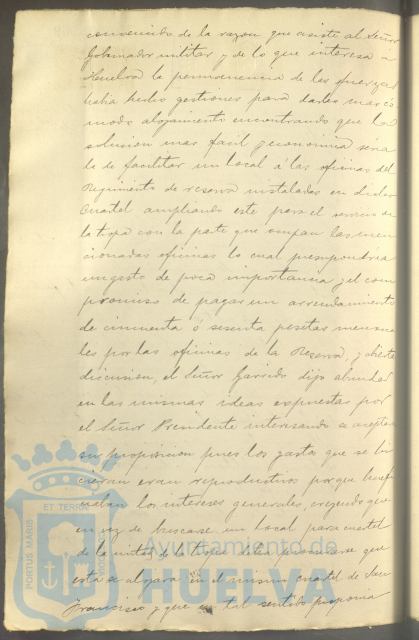 convencido de la razon que asiste al Señor
Gobernador militar y de lo que interesa a
Huelva la permanencia de las fuerzas
habia hecho gestiones para darles mas có
modo alojamiento encontrando que la
solucion mas facil y economica seria
la de facilitar un local á las oficinas del
Regimiento de reserva instaladas en dicho
Cuartel ampliando este para el servicio de
la tropa con la parte que ocupan las men
cionadas oficinas lo cual presupondria
un gasto de poca importancia y el com
promiso de pagar un arrendamiento
de cincuenta ó sesenta pesetas mensua
les por las oficinas de la Reserva, y abierta
discusion, el Señor Garrido dijo abundar
en las mismas ideas expuestas por
el Señor Presidente interesando se aceptara
su proposicion pues los gastos que se hi
cieran eran reproductivos porque benefi
ciaban los intereses generales, creyendo que
en vez de buscarse un local para cuartel
de la mitad de la tropa debia procurarse que
esta se alojara en el mismo cuartel de San
Francisco y que en tal sentido proponia
PORTUS MARIS ET TERRÆ
Ayuntamiento de
HUELVA